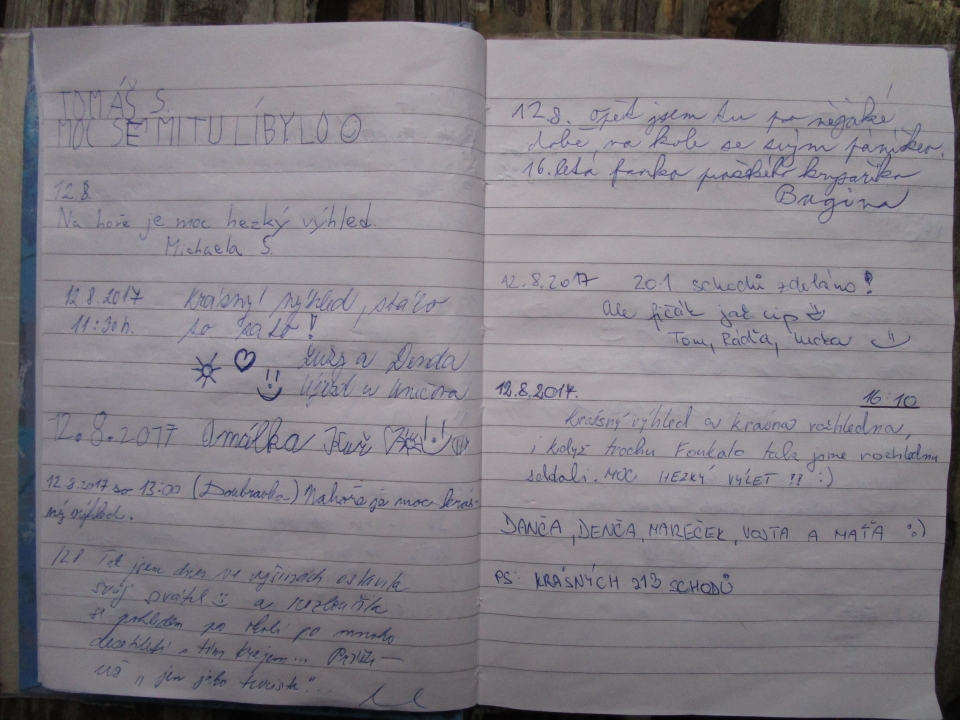 TOMÁŠ S.
MOC SE MI TU LÍBYLO
12.8.
Na hoře je moc hezký výhled.
Michaela S.
12.8.2017 Krásný výhled, stálo
11:30h. to za to!
a Denda
Újezd u Uničova
12.8.2017 Amálka
12.8.2017 so 13:00 (Doubravka) Nahoře je moc krás-
ný výhled.
12.8 Tak jsem dnes ve výšinách oslavila
svůj svátek a rozloučila
se pohledem po okolí po mnoho
desetiletí s tím krajem...
už "jen jako turista"...
12.8. opět jsem tu po nějaké
době, na kole se svým páníčkem.
16.letá fenka pražského krysaříka
Bugina
12.8.2017 201 schodů zdoláno!
Ale fičák jak cip
Tom, Ráďa, Lucka
12.8.2017. 16:10
Krásný výhled a krásná rozhledna,
i když trochu Foukalo tak jsme rozhlednu
zdolali. MOC HEZKÝ VÝLET !! :)
DANČA, DENČA, MAREČEK, VOJTA A MAŤA :)
PS: KRÁSNÝCH 213 SCHODŮ